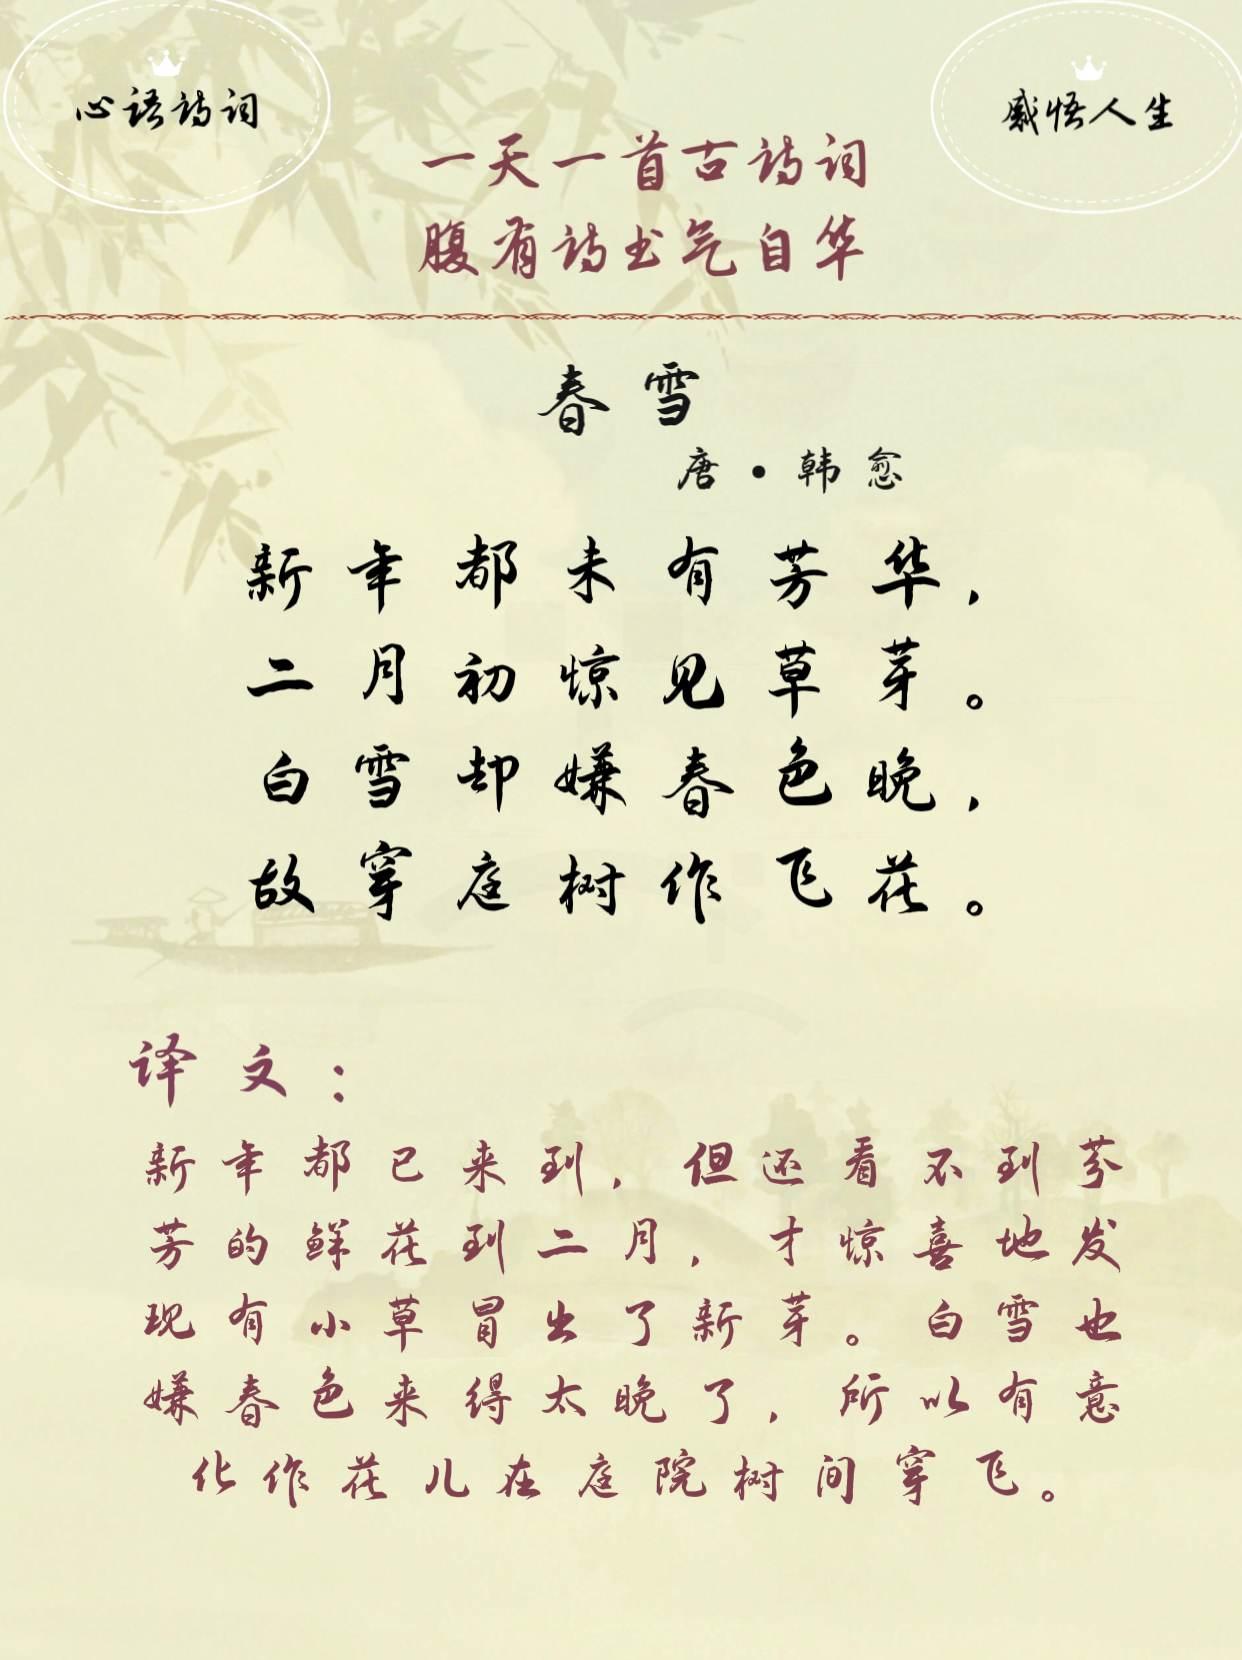 心语诗词
感悟人生
一天一首古诗词
腹有诗书气自华
春雪
唐·韩愈
新年都未有芳华，
二月初惊见草芽。
白雪却嫌春色晚，
故穿庭树作飞花。
译文：
新年都已来到，但还看不到芬
芳的鲜花到二月，才惊喜地发
现有小草冒出了新芽。白雪也
嫌春色来得太晚了，所以有意
化作花儿在庭院树间穿飞。